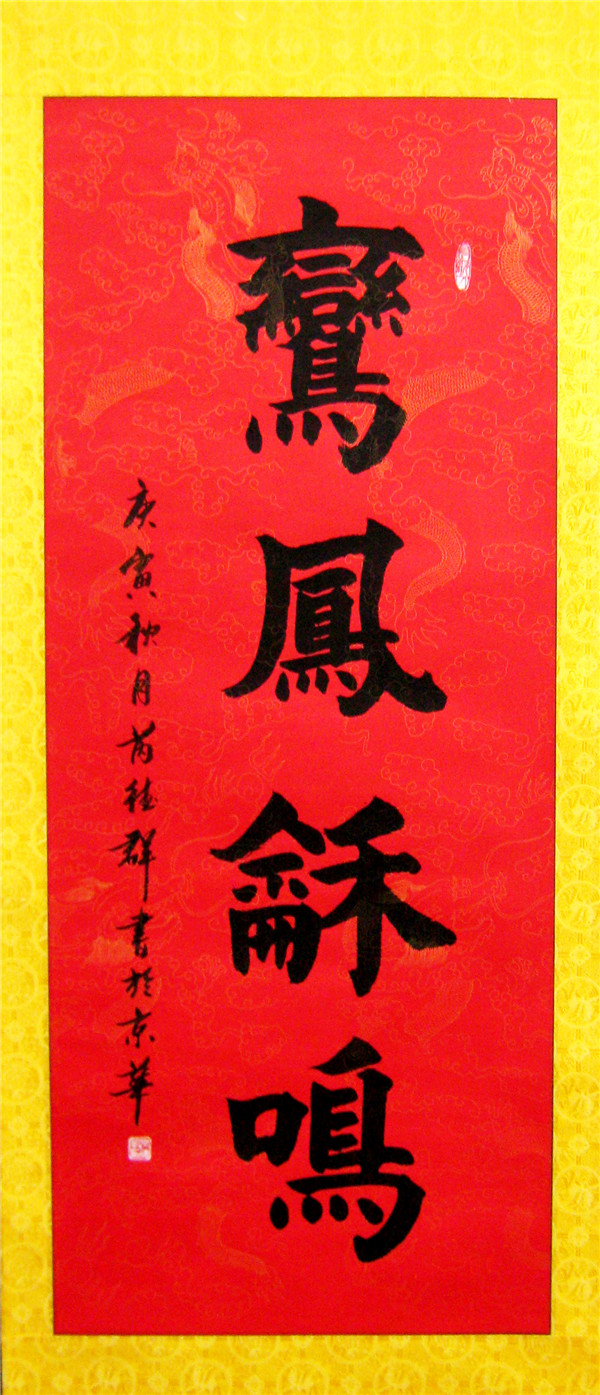 鸞鳳龢鳴
庚寅秋月芮德群書於京華